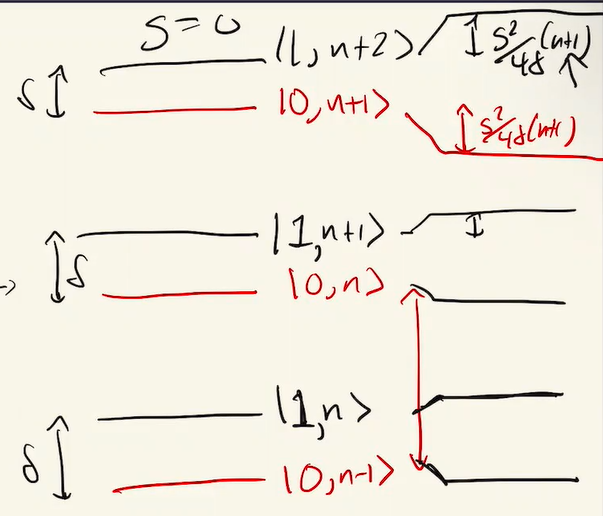 S=0
|1,n+2> S²/4δ(n+1)
δ
|0,n+1> S²/4δ(n+1)
|1,n+1>
δ
|0,n>
|1,n>
δ
|0,n-1>